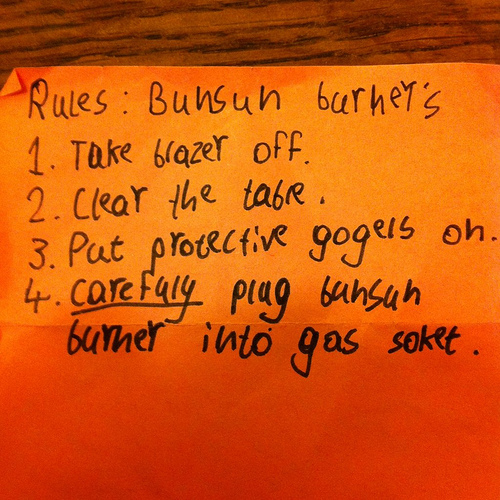 Rules: Bunsun burner's
1. Take blazer off.
2. Clear the table.
3. Put protective gogels on.
4. carefuly plug bunsun
burner into gas soket.